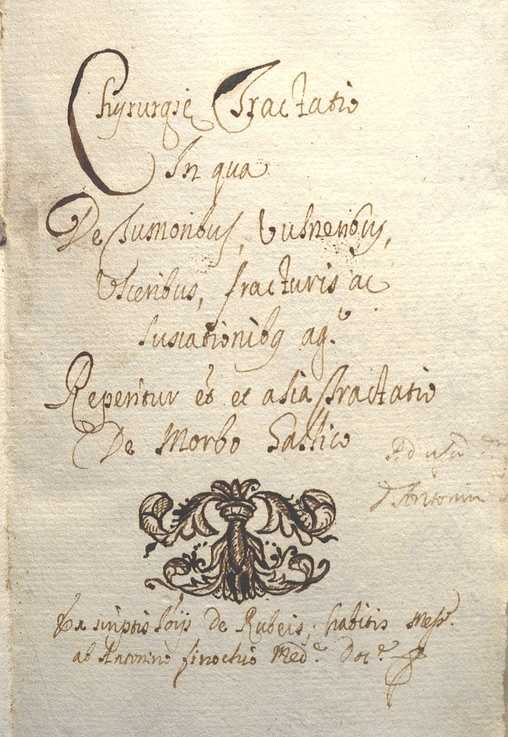 Chyrurgie Tractatio
In qua
De Tumoribus, Vulneribus,
Ulceribus, fracturis ac
luxationibq agr
Reperitur et et alia tractatio
De Morbo Gallico
Ad usū
Antonin
Ex scriptis Loijs de Rubeis, habitis Messe
ab Antonino finochio Med.e Doc.e